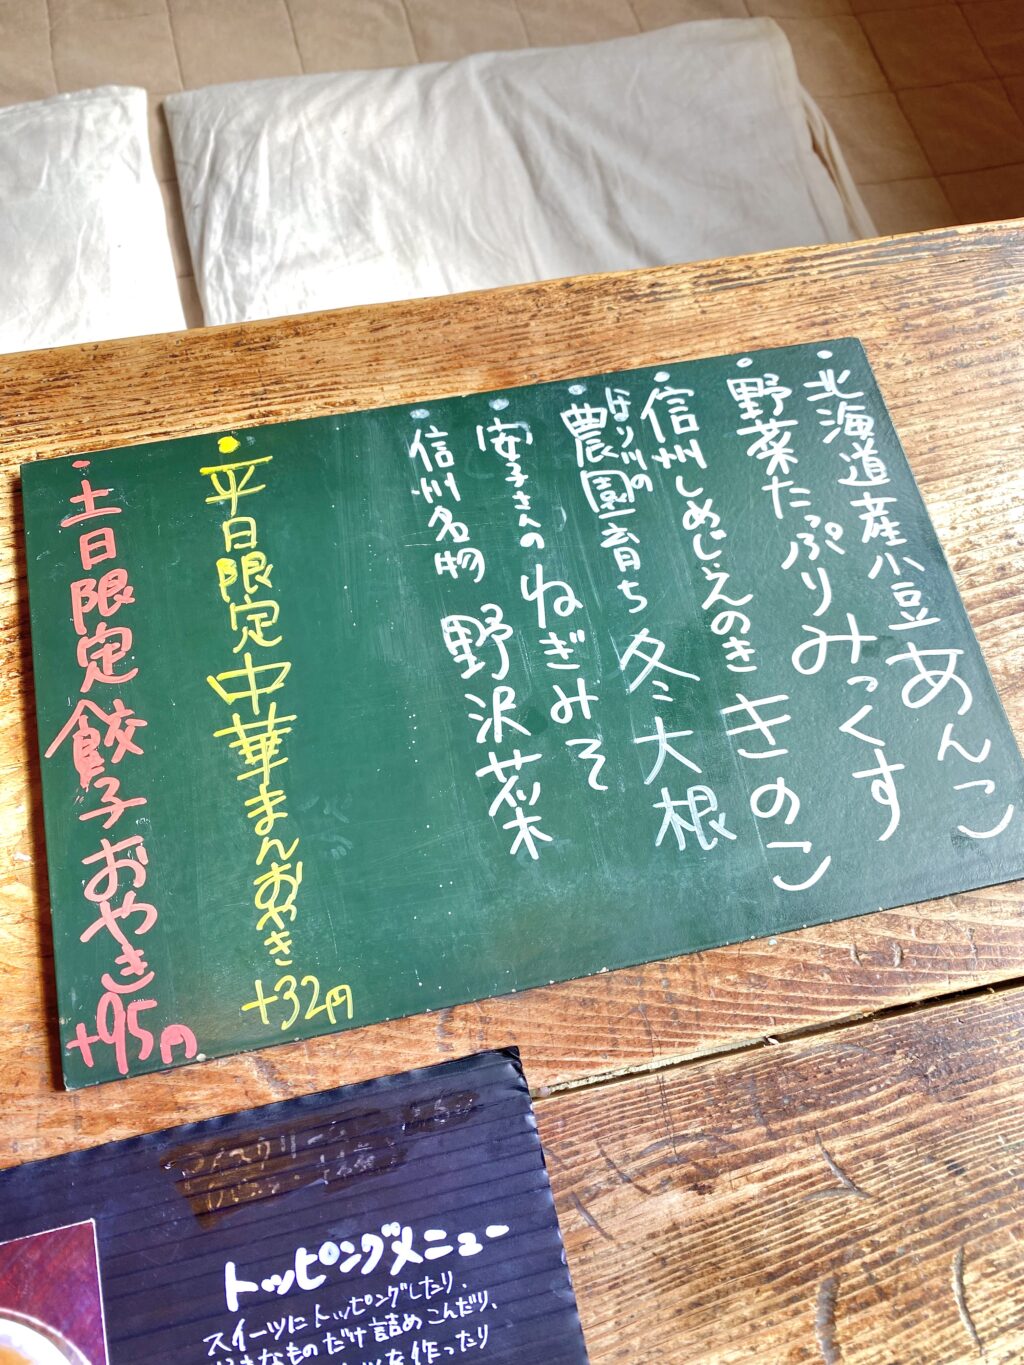 北海道産小豆あんこ
野菜たぷりみっくす
信州しめじえのききのこ
はり川の
農園育ち冬大根
安子さんのねぎみそ
信州名物 野沢菜
平日限定中華まんおやき+32円
土日限定餃子おやき+95円
トッピングメニュー
スイーツにトッピングしたり、
好きなものだけ詰めこんだり、
を作ったり